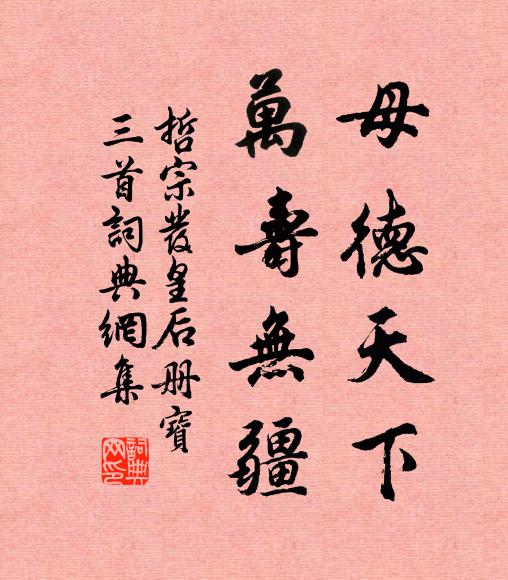 母德天下
萬壽無疆
哲宗發皇后册寶
三首詞典網集
詞典网印